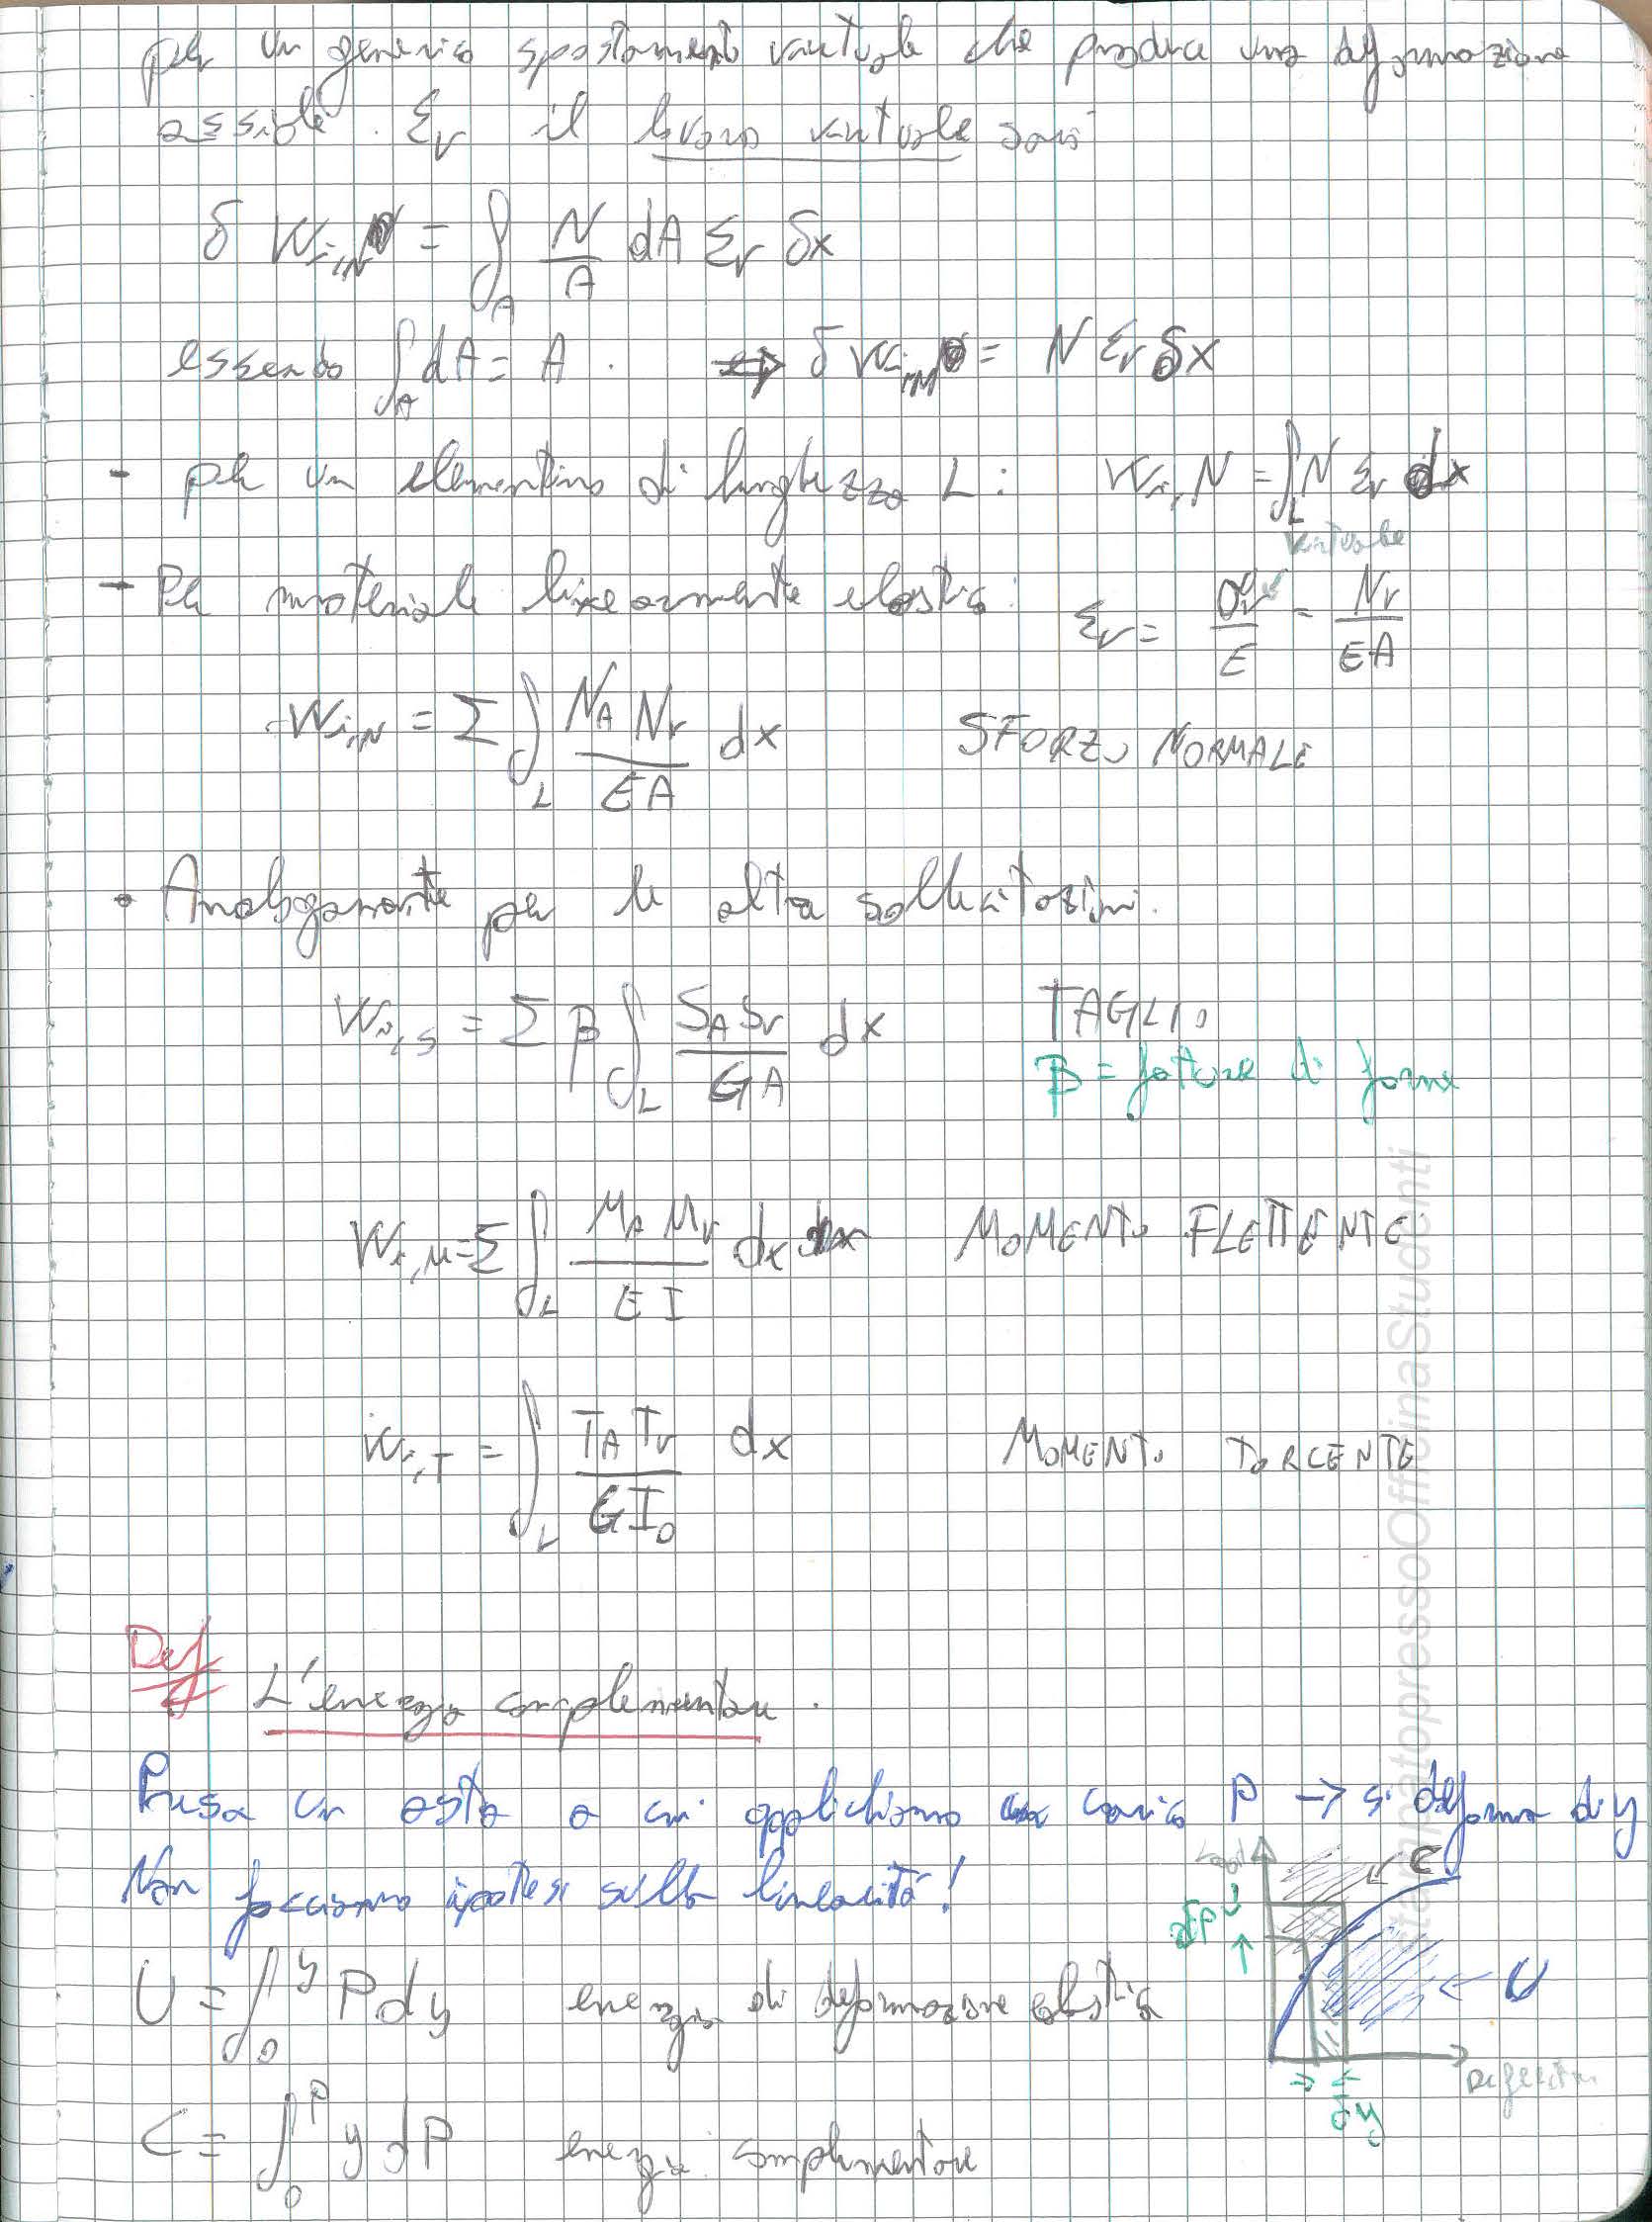 per un generico spostamento virtuale che produce una deformazione
assiale εv il lavoro virtuale sarà
δ Wi,N = ∫A N/A dA εv δx
essendo ∫A dA = A . ⇒ δ Wi,N = N εv δx
- per un elementino di lunghezza L : Wi,N = ∫L N εv dx
virtuale
- Per materiale linearmente elastico: εv = σv/E = Nv/EA
Wi,N = Σ ∫L NA Nv/EA dx SFORZO NORMALE
• Analogamente per le altre sollecitazioni.
Wi,S = Σ β ∫L SA Sv/GA dx TAGLIO
β = fattore di forma
Wi,M = Σ ∫L MA Mv/EI dx MOMENTO FLETTENTE
Wi,T = ∫L TA Tv/GI0 dx MOMENTO TORCENTE
Def
L'energia complementare .
Presa un asta a cui applichiamo un carico P → si deforma di y
Non facciamo ipotesi sulla linearità!
U = ∫0^y P dy energia di deformazione elastica
C = ∫0^P y dP energia complementare
Load
C
δP
U
δy
stampatopressoOfficinaStudenti